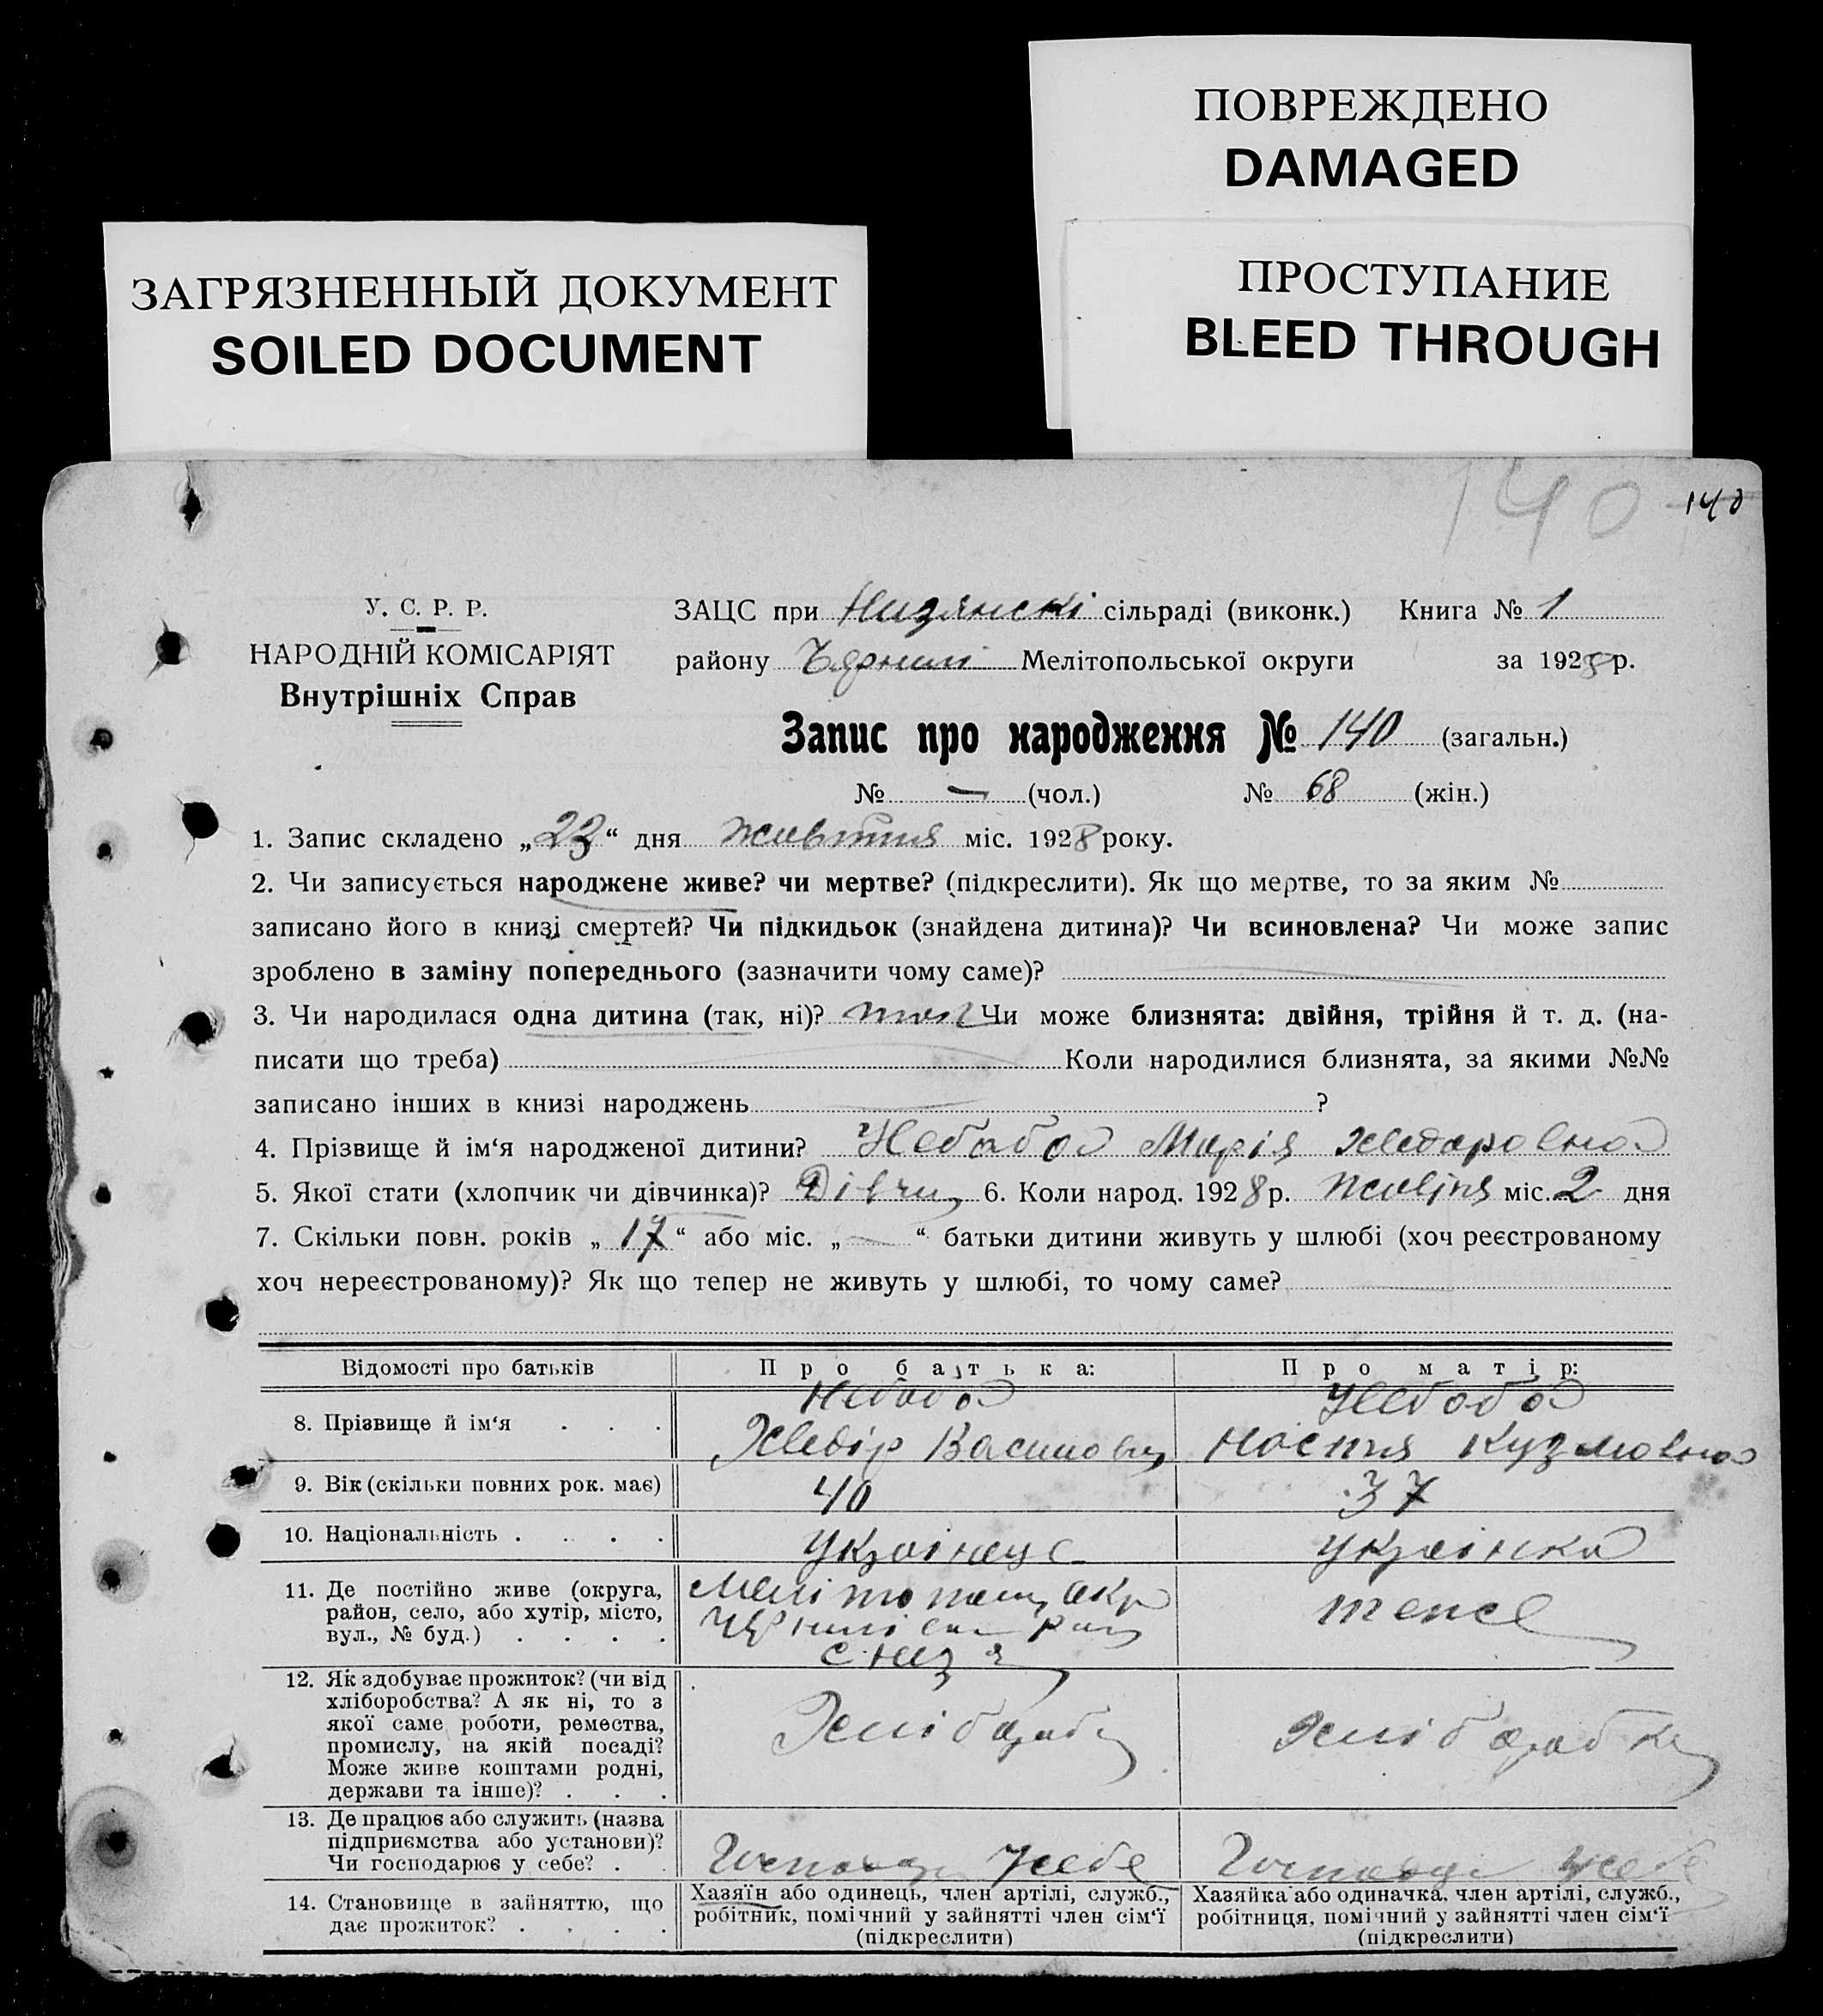 ПОВРЕЖДЕНО
DAMAGED
ЗАГРЯЗНЕННЫЙ ДОКУМЕНТ
SOILED DOCUMENT
ПРОСТУПАНИЕ
BLEED THROUGH
140 140
У. С. Р. Р.
НАРОДНІЙ КОМІСАРІЯТ
Внутрішніх Справ
ЗАЦС при Низянскі сільраді (виконк.) Книга № 1
району Мелітопольської округи за 1928 р.
Запис про народження № 140 (загальн.)
№ — (чол.) № 68 (жін.)
1. Запис складено „23“ дня жовтня міс. 1928 року.
2. Чи записується народжене живе? чи мертве? (підкреслити). Як що мертве, то за яким №
записано його в книзі смертей? Чи підкидьок (знайдена дитина)? Чи всиновлена? Чи може запис
зроблено в заміну попереднього (зазначити чому саме)?
3. Чи народилася одна дитина (так, ні)? Чи може близнята: двійня, трійня й т. д. (на-
писати що треба) Коли народилися близнята, за якими №№
записано інших в книзі народжень ?
4. Прізвище й ім‘я народженої дитини? Небаба Марія Хведаровна
5. Якої стати (хлопчик чи дівчинка)? Дівчи 6. Коли народ. 1928 р. жовтня міс. 2 дня
7. Скільки повн. років „17“ або міс. „—“ батьки дитини живуть у шлюбі (хоч реєстрованому
хоч нереєстрованому)? Як що тепер не живуть у шлюбі, то чому саме?
Відомості про батьків Про батька: Про матір:
8. Прізвище й ім‘я Небаба Хведір Небаба Настя Кузмовна
9. Вік (скільки повних рок. має) 40 37
10. Національність Українець Українка
11. Де постійно живе (округа,
район, село, або хутір, місто,
вул., № буд.)
тоже
12. Як здобуває прожиток? (чи від
хліборобства? А як ні, то з
якої саме роботи, ремества,
промислу, на якій посаді?
Може живе коштами родні,
держави та інше)?
Хлібароб
13. Де працює або служить (назва
підприємства або установи)?
Чи господарює у себе?
Усебе Усебе
14. Становище в зайняттю, що
дає прожиток?
Хазяїн або одинець, член артілі, служб.,
робітник, помічний у зайнятті член сім‘ї
(підкреслити)
Хазяйка або одиначка, член артілі, служб.,
робітниця, помічний у зайнятті член сім‘ї
(підкреслити)